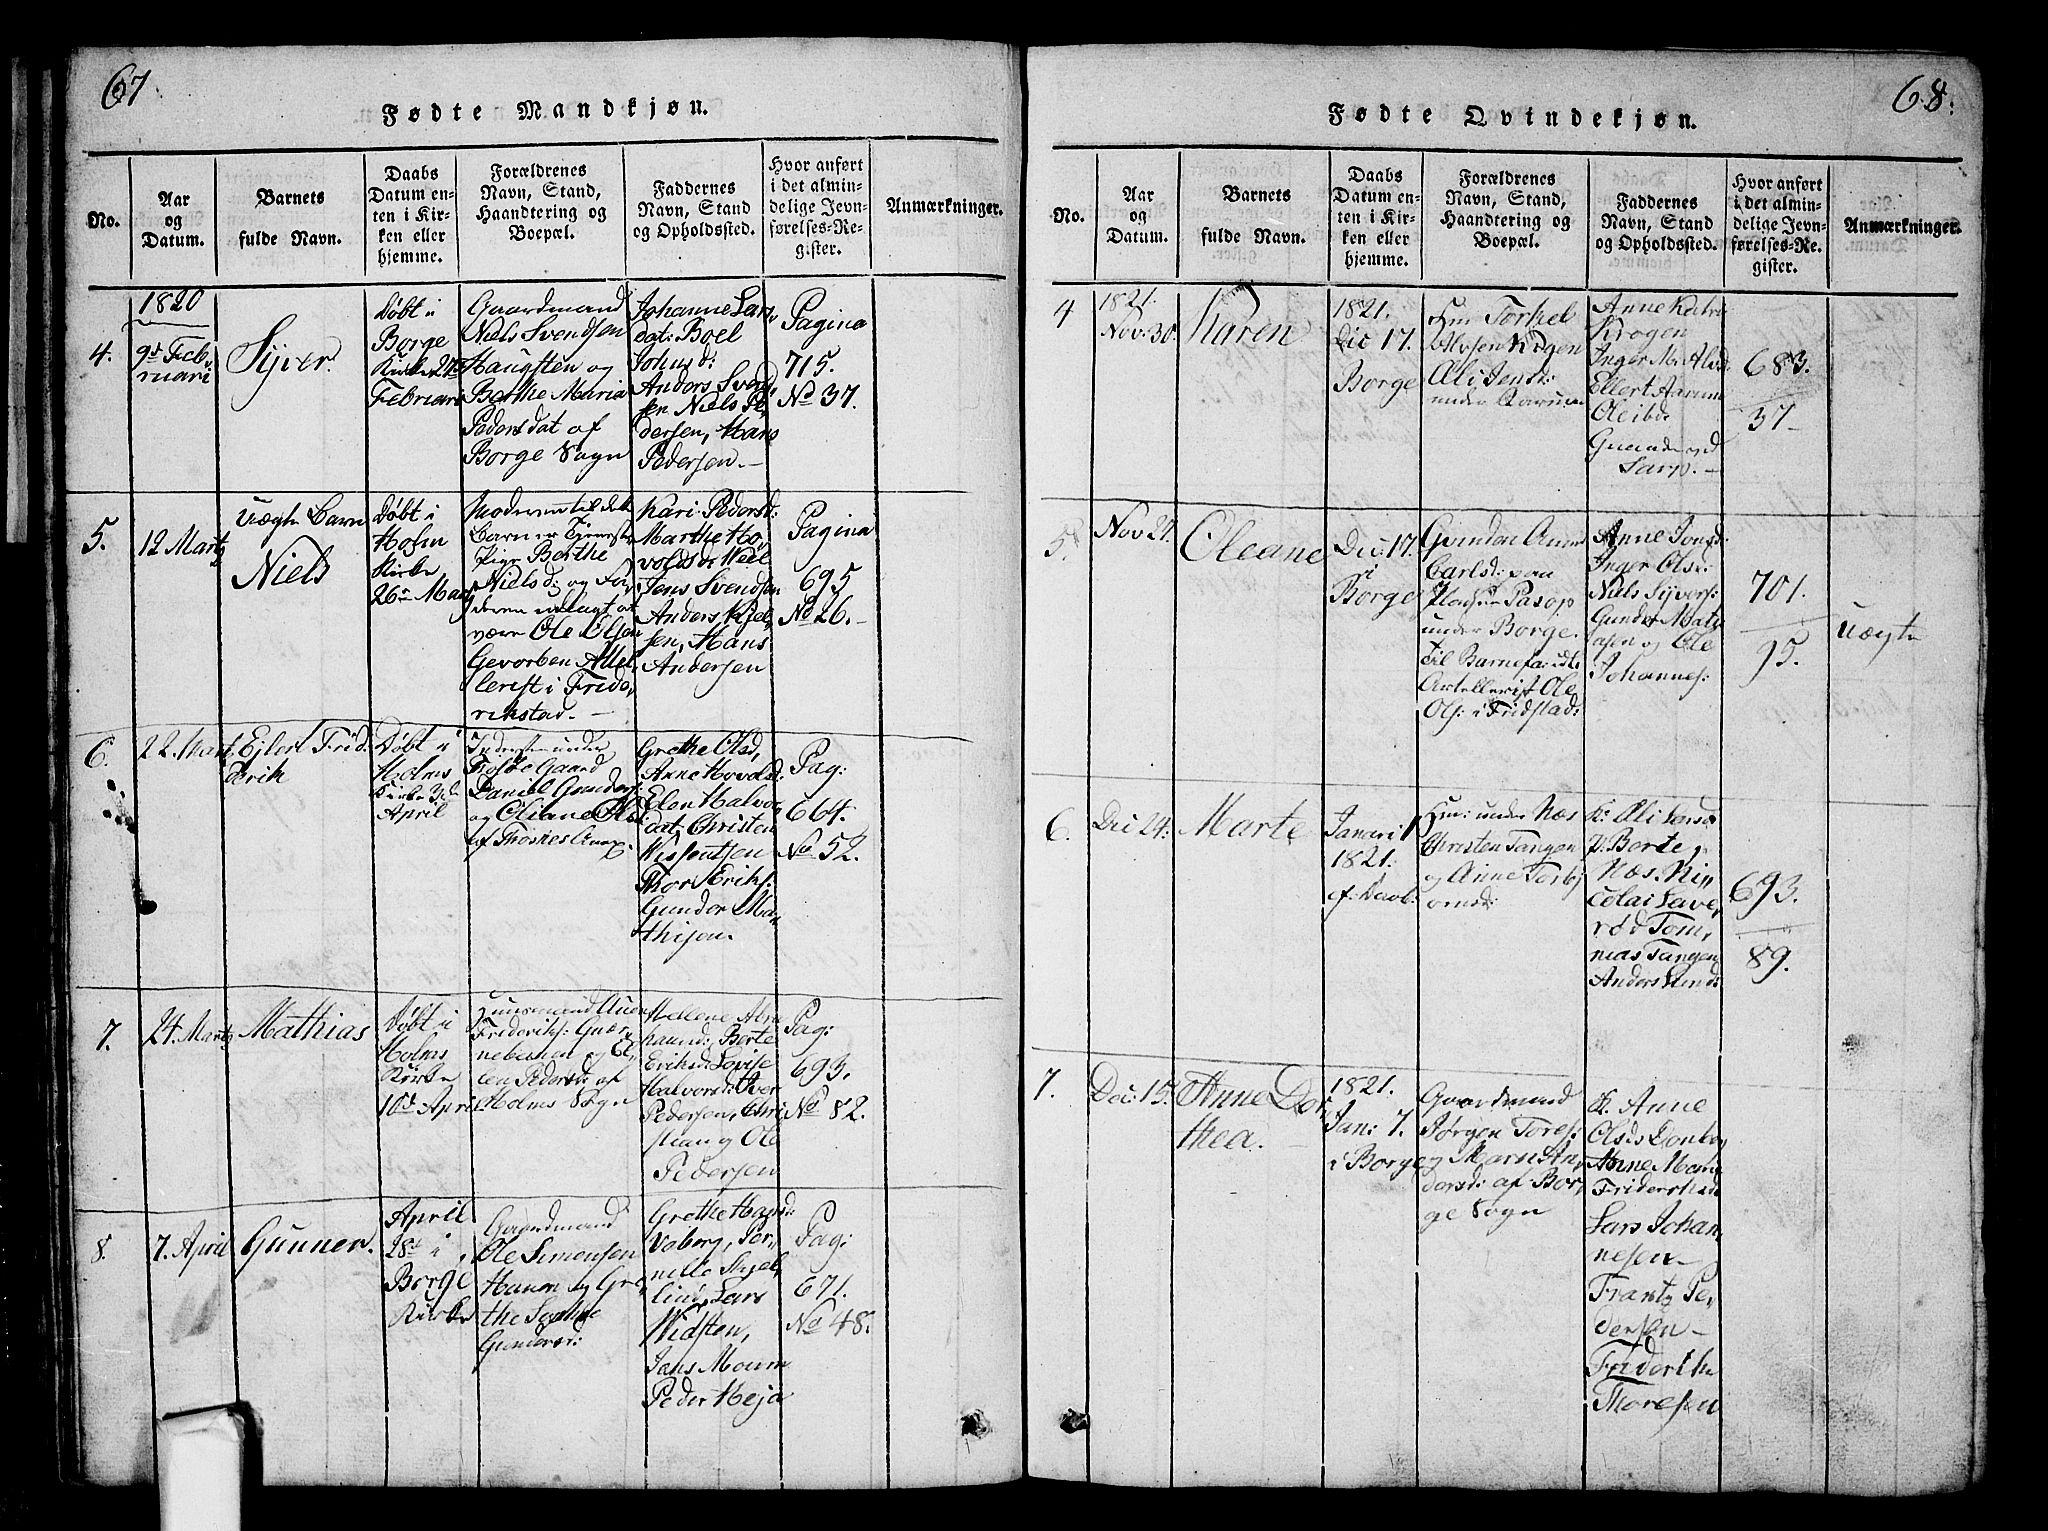 67.
Fødte Mandkjøn.
No.
Aar
og
Datum.
Barnets
fulde Navn.
Daabs
Datum en-
ten i Kir-
ken eller
hjemme.
Forældrenes
Navn, Stand,
Haandtering og
Boepæl.
Faddernes
Navn, Stand
og Opholdssted.
Hvor anført
i det almin-
delige Jevn-
førelses-Re-
gister.
Anmærkninger.
4.
1820
9de Feb-
ruari
Sijver.
Døbt i
Borge
Kirke 27
Februari
Gaardmand
Niels Svendsen
Haugsten og
Berthe Maria
Pedersdat af
Borge Sogn
Johanne Lars-
dat: Boel
Johnsd:
Anders Svend-
sen Niels Pe-
dersen, Hans
Pedersen.-
Pagina
715.
No 37.
5.
12 Martz
Uægte Barn
Niels
Døbt i
Holm
Kirke
26 Martz
Moderen til dette
Barn er Tjeneste
Pige Berthe
Nielsd: og Fa-
deren udlagt at
være Ole Olsen
Gevorben Attel-
lerist i Fride-
rikstad.-
Kari Pedersd:
Marthe Ho-
voldsd:
Jens Svendsen
Anders Kjel-
sen, Hans
Andersen
Pagina
695
No 26.
6.
22 Mart.
Ejlert Frid-
derik
Døbt i
Holms
Kirke 3de
April
under
Gaard
Daniel Gunders:
og Oliane
af
Grethe Olsd,
Anne Hovolds:
Elen Halvor-
dat, Christen
Thor Eriks:
Gunder Ma-
thisen.
Pag:
664.
No 52.
7.
24. Martz
Mathias
Døbt i
Holms
Kirke
10de April
Huusmand
Frederiks:
og El-
len Pedersd: af
Holms Sogn
Hellene
Berte
Eriksd: Lovise
Halvorsd:
Pedersen, Chri-
stian og Ole
Pedersen
Pag:
693.
No 82.
8.
7. April
Gunner.
April
28de i
Borge
Kirke
Gaardmand
Ole Simensen
Haunn og Gre-
the Sophie
Gundersd:
Grethe Hansd:
Vaberg, Per-
nille Skjel-
lind, Lars
Vidsten,
Jans Moum
Peder Heja
Pag:
671.
No 48.
68.
Fødte Qvindekjøn.
No.
Aar
og
Datum.
Barnets
fulde Navn.
Daabs
Datum en-
ten i Kir-
ken eller
hjemme.
Forældrenes
Navn, Stand,
Haandtering og
Boepæl.
Faddernes
Navn, Stand
og Opholdssted.
Hvor anført
i det almin-
delige Jevn-
førelses-Re-
gister.
Anmærkninger.
4
1821.
Nov: 30.
Karen
1821.
Dic 17.
Borge
Hm Torkel
Æli Jensd:
under
Anne Katri
Krogen
Inger M. Alvs:
Ellert Aarum
Ole ibd:
ved
Sarp.-
683.
37-
5.
Nov 24.
Oleane
Dic: 17.
i
Borge
Gunder Anne
Carlsd: paa
Pladsen Pasop
under Borge.
til Barnefa: udl:
Artellerist Ole
Ols: i Fridstad:
Anne Jonsd:
Inger Olsd:
Niels Sijvers:
Gunder Mathi-
asen og Ole
Johannes:
701.
95.
Uægte
6.
Dic 24.
Marte
Janari 1
1821.
Hm: under Næs
Christen Tangen
og Anne Torbj-
ornsd:
K: Æli Larsd
P. Borte,
Næs. Ni-
colai Lave-
rød Tom-
mas Tangen
Anders Lund:
693.
89.
7.
Dec: 15.
Anne Dor-
thea.
1821.
Jan: 7.
i Borge
Gaardmand
Jørgen Tores:
og Maren An-
dersd: af Bor-
ge Sogn
K. Anne
Olsd:
Anne
Lars Johan-
nesen-
Frantz Pe-
dersen-
Friderik
Thoresen